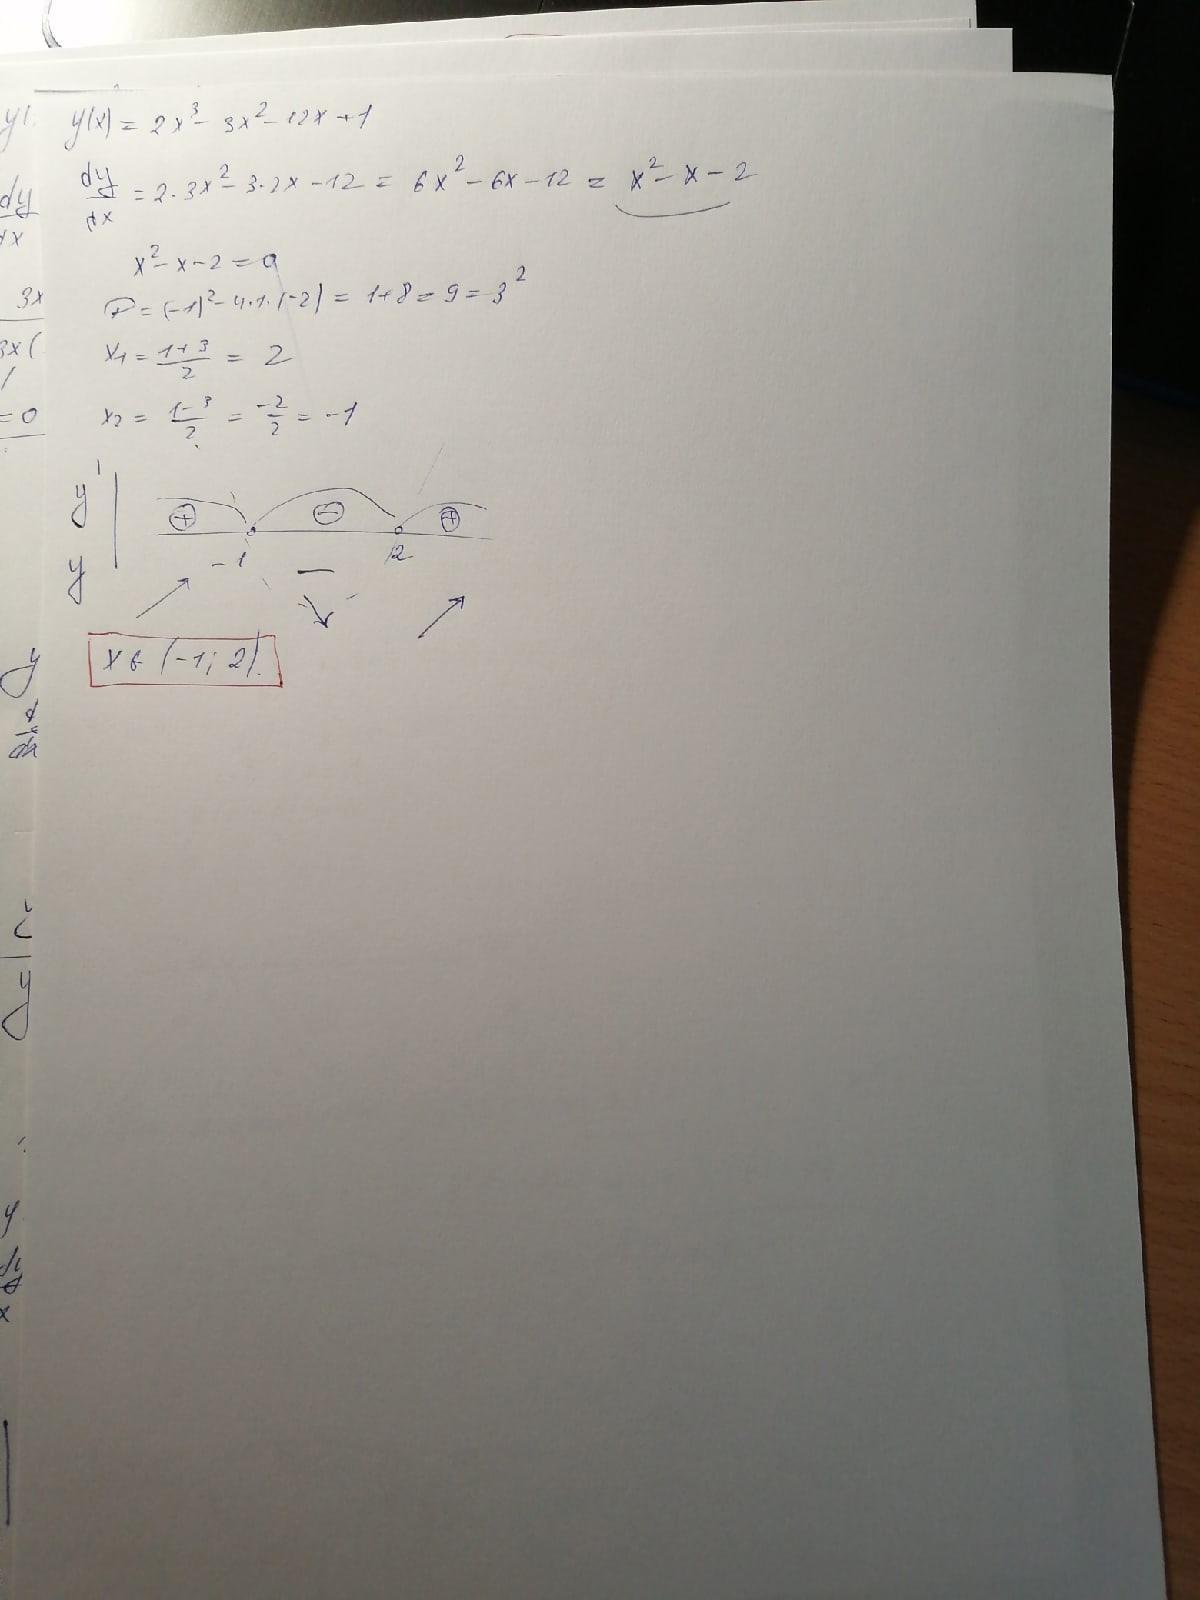 y(x) = 2x³ - 3x² - 12x + 1
dy/dx = 2·3x² - 3·2x - 12 = 6x² - 6x - 12 = x² - x - 2
x² - x - 2 = 0
D = (-1)² - 4·1·(-2) = 1+8 = 9 = 3²
x₁ = (1+3)/2 = 2
x₂ = (1-3)/2 = -2/2 = -1
y' + - +
-1 2
y
x ∈ (-1; 2).
y(
dy
dx
3x
3x(
=0